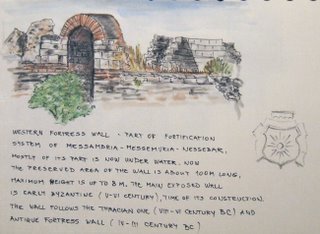 WESTERN FORTRESS WALL - PART OF FORTIFICATION
SYSTEM OF MESSAMBRIA - MESSEMVRIA - NESSEBAR,
MOSTLY OF ITS PART IS NOW UNDER WATER. NOW
THE PRESERVED AREA OF THE WALL IS ABOUT 100M LONG,
MAXIMUM HEIGHT IS UP TO 8 M. THE MAIN EXPOSED WALL
IS EARLY BYZANTINE (V-VI CENTURY), TIME OF ITS CONSTRUCTION.
THE WALL FOLLOWS THE THRACIAN ONE (VIII-VI CENTURY BC) AND
ANTIQUE FORTRESS WALL (IV-III CENTURY BC)